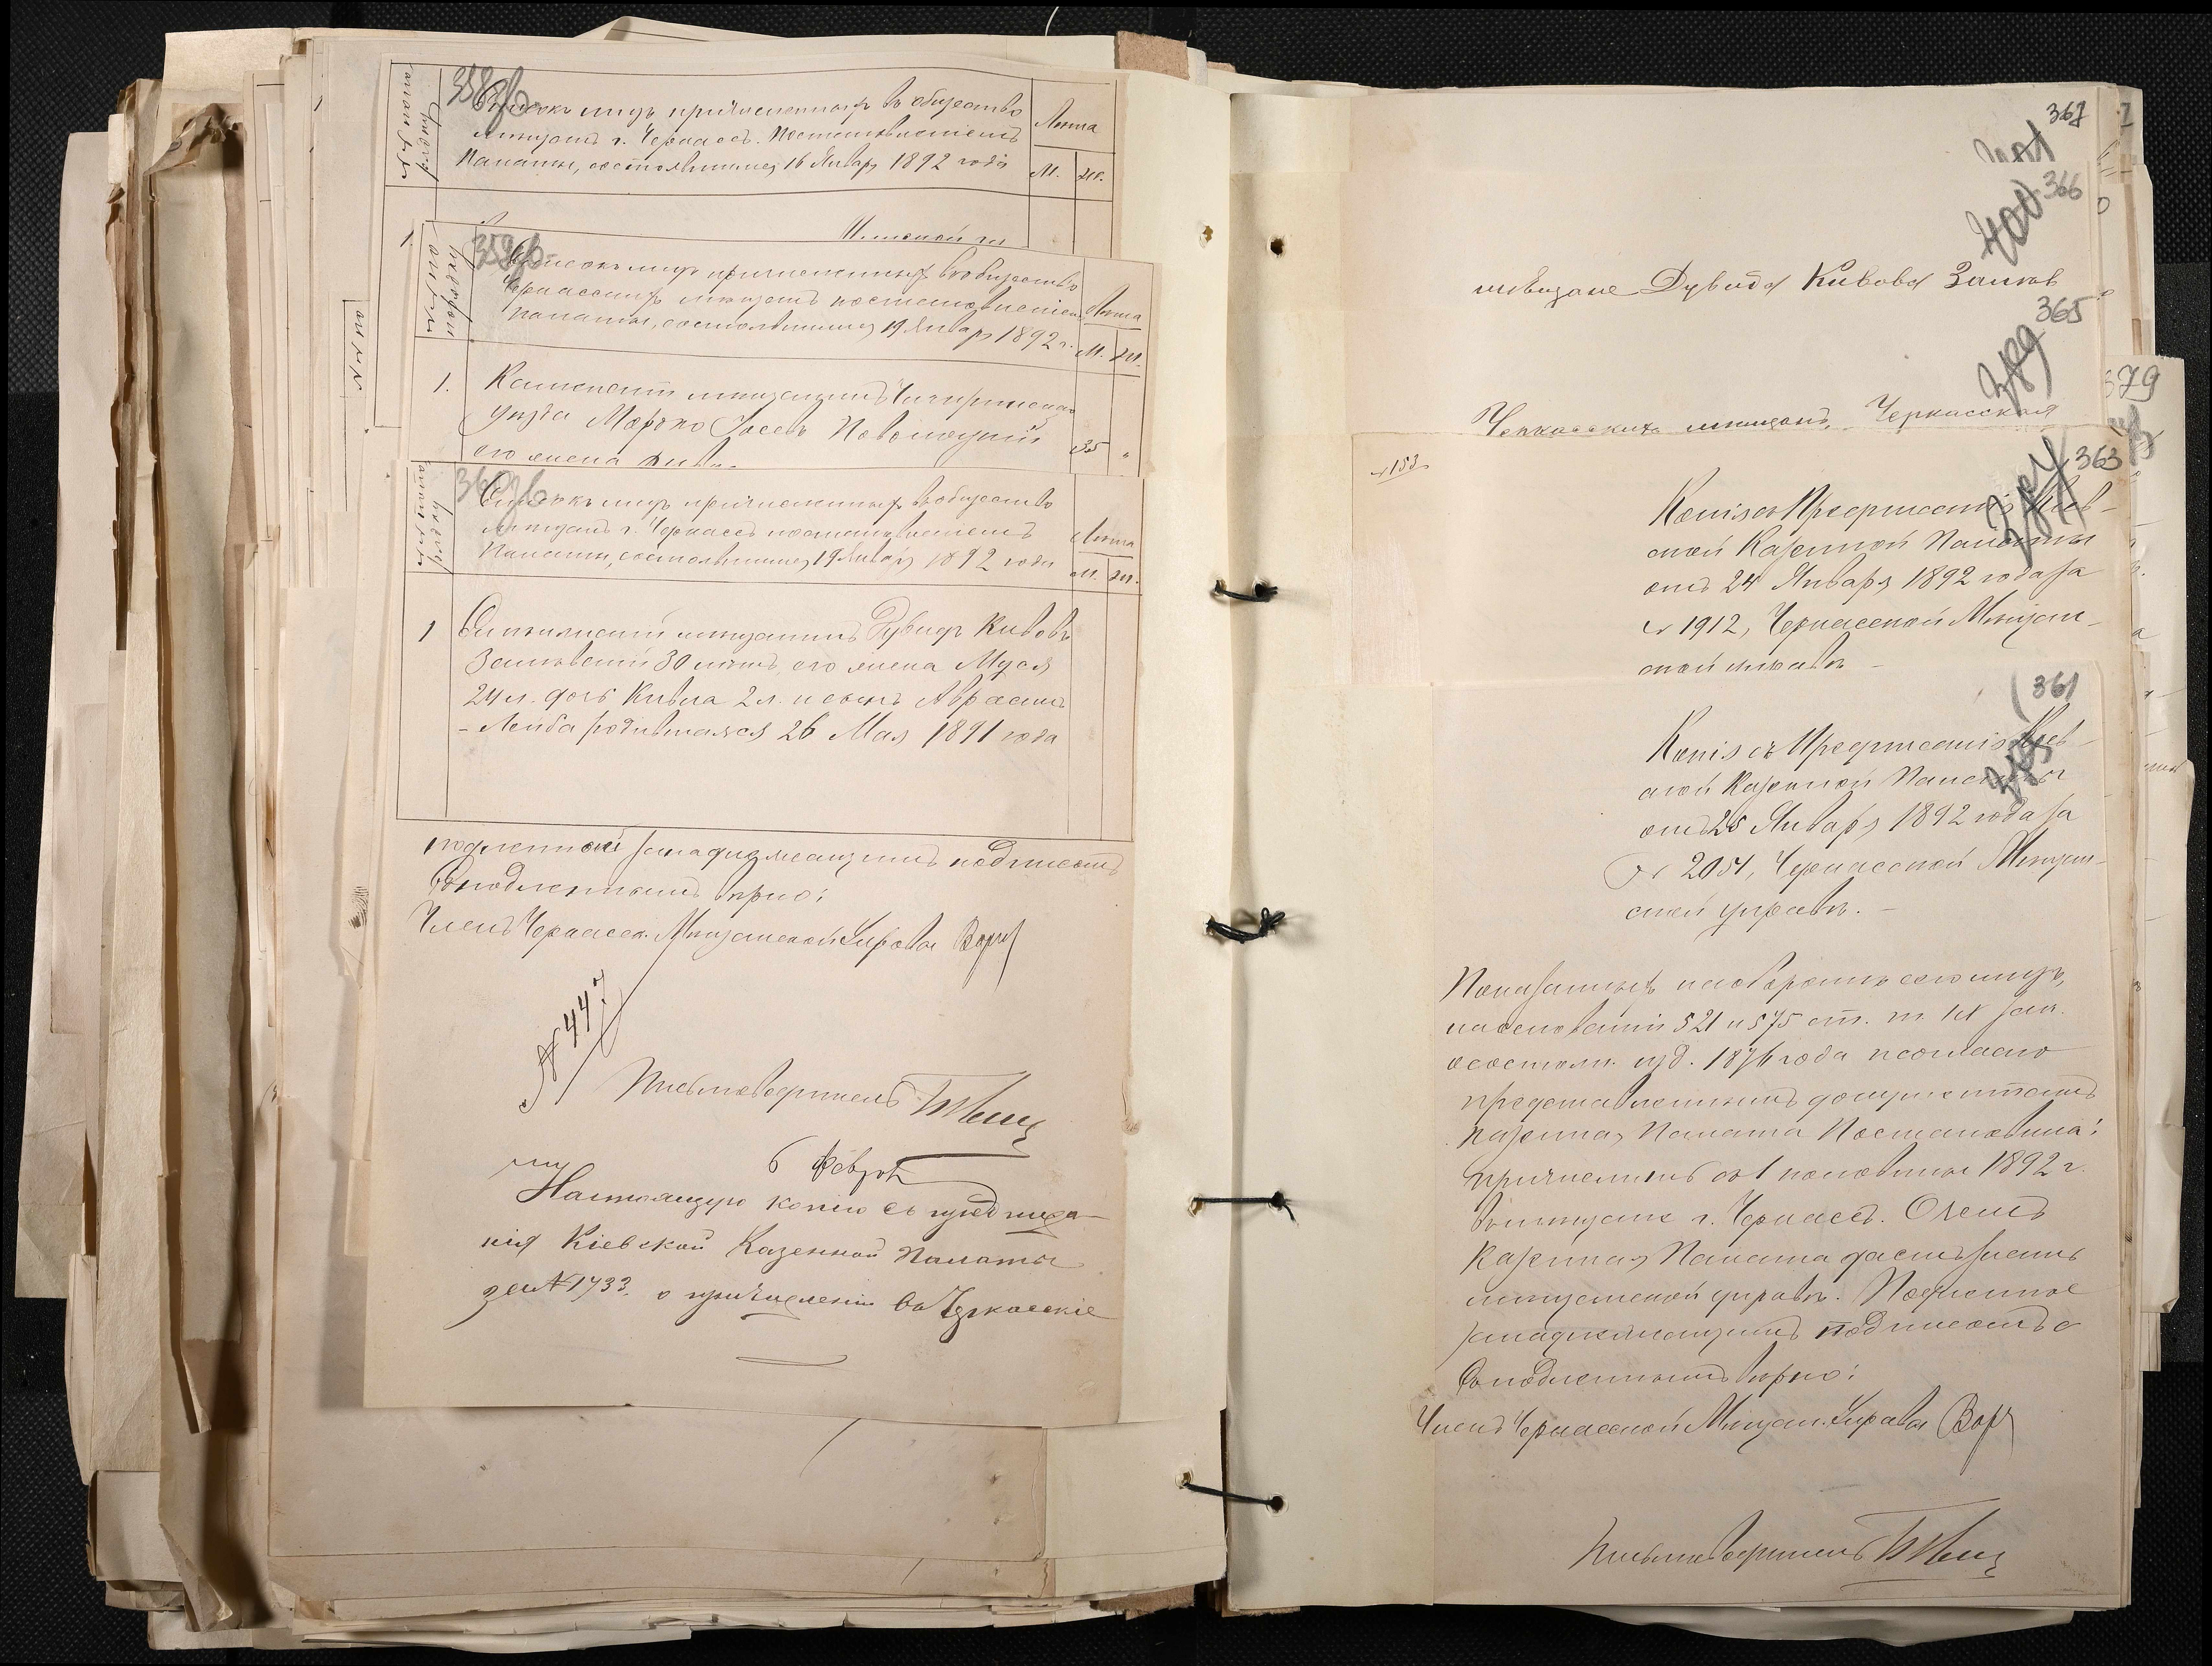 358об
Списокъ лицъ причисленныхъ въ общество
мѣщанъ г. Черкассъ. Постановленіемъ
Палаты, состоявшимся 16 Января 1892 года
Лѣта
М. Ж.
1
359об
Списокъ лицъ причисленныхъ въ общество
Черкасскихъ мѣщанъ постановленіемъ
палаты, состоявшимся 19 Января 1892 г.
Лѣта
М. Ж.
1. мѣщанинъ Чигиринскаго
уѣзда Мошко Іосевъ
его жена
35 "
360об
Списокъ лицъ причисленныхъ въ общество
мѣщанъ г. Черкассъ постановленіемъ
Палаты, состоявшимся 19 Января 1892 года
Лѣта
М. Ж.
1 мѣщанинъ Дувидъ Кивовъ
Заславскій 30 лѣтъ, его жена Муся
24 л. дочь Кивла 2 л. и сынъ Авраамъ
-Лейба родившаяся 26 Мая 1891 года
подлинной за надлежащимъ подписомъ
Съ подлиннымъ вѣрно:
Членъ Черкасск. Мѣщанской Управы
№ 447
Письмоводитель
6 Февраля
Настоящую копію съ предписа-
нія Кіевской Казенной Палаты
за № 1733. о причисленіи въ Черкасскіе
367
401
366
400
мѣщане Дувида Кивова Заслав
365
389
Черкасскихъ мѣщанъ, Черкасская
№ 153
363
Копія съ Предписанія Кіев-
ской Казенной Палаты
отъ 24 Января 1892 года за
№ 1912, Черкасской Мѣщан-
ской управѣ –
361
Копія съ Предписанія Кіев-
ской Казенной Палаты
отъ 25 Января 1892 года за
№ 2054, Черкасской Мѣщан-
ской управѣ. –
Показанныхъ на оборотѣ сего лицъ,
на основаніи 521 и 575 ст. т. IX зак.
о состоян. изд. 1876 года и согласно
представленнымъ документамъ
Казенная Палата Постановила:
причислить съ 1 половины 1892 г.
въ мѣщане г. Черкассъ. О чемъ
Казенная Палата даетъ знать
мѣщанской управѣ. Подлинное
за надлежащимъ подписомъ
Съ подлиннымъ вѣрно:
Членъ Черкасской Мѣщан. Управы
Письмоводитель
379